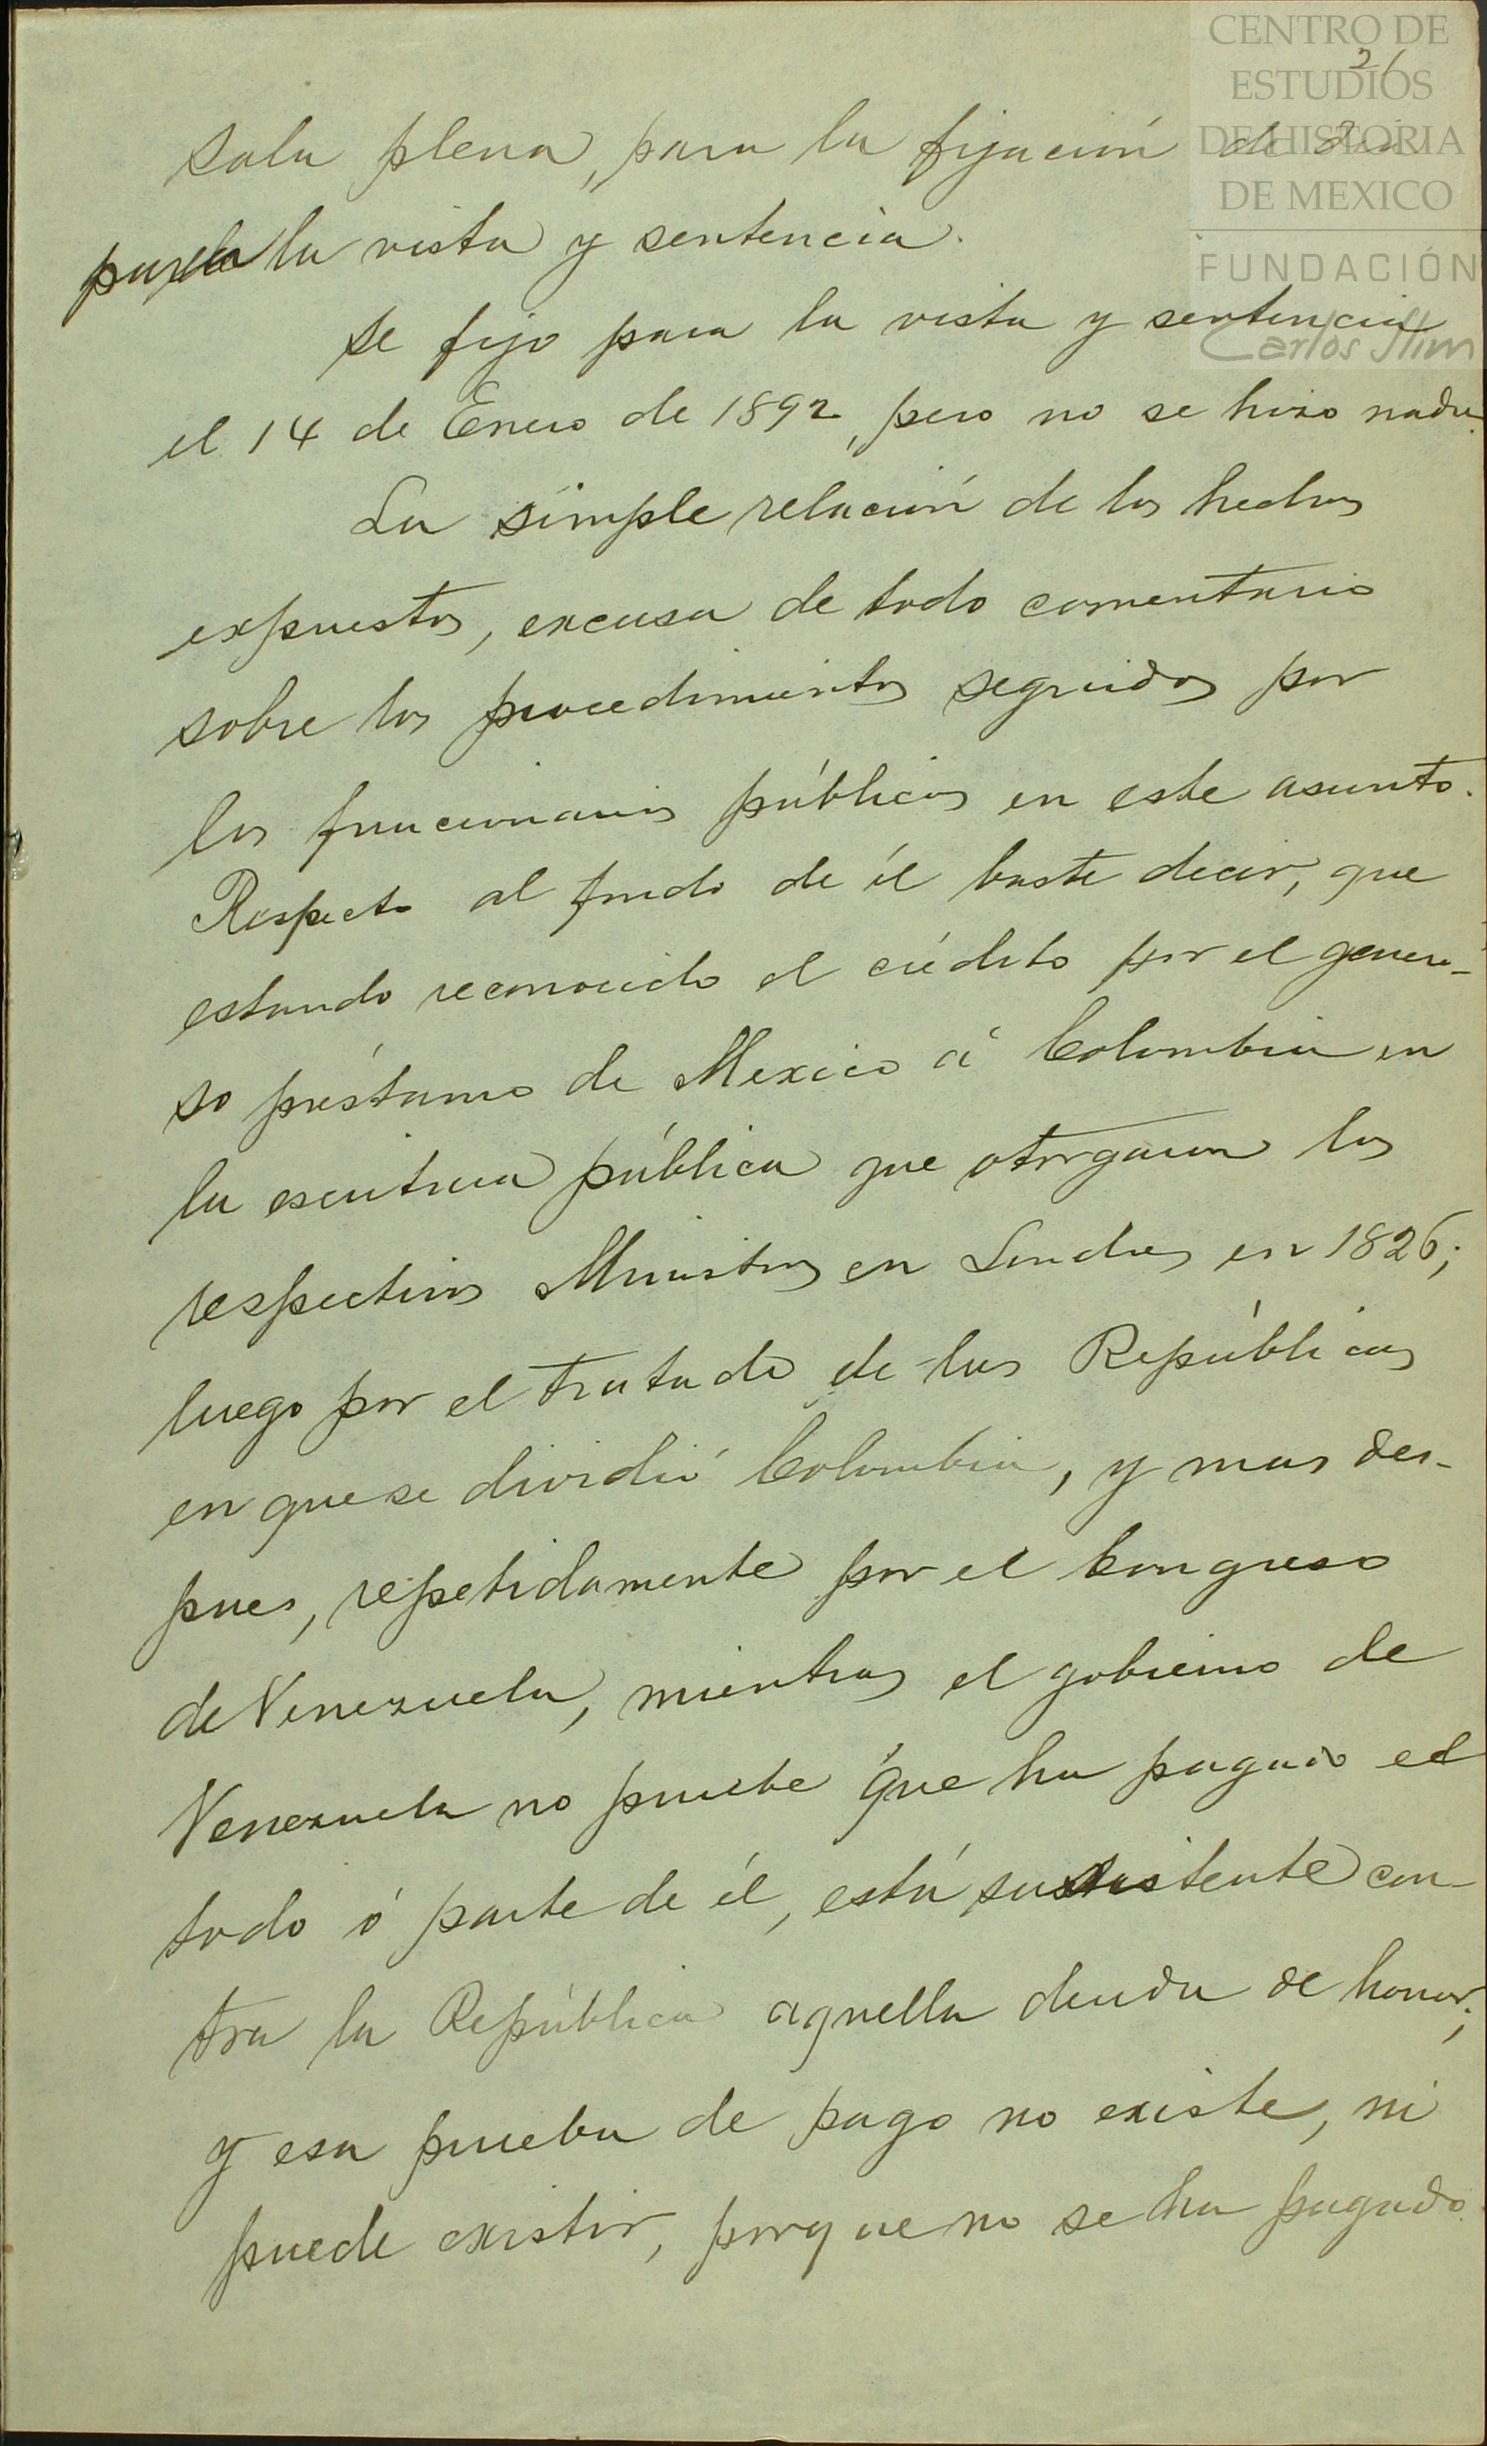 CENTRO DE
ESTUDIOS
DE HISTORIA
DE MEXICO
FUNDACIÓN
Carlos Slim
21
sala plena, para la fijación de dia
para la vista y sentencia.
Se fijo para la vista y sentencia
el 14 de Enero de 1892, pero no se hizo nada.
La simple relación de los hechos
expuestos, excusa de todo comentario
sobre los procedimientos seguidos por
los funcionarios públicos en este asunto.
Respecto al fondo de él baste decir, que
estando reconocido el crédito por el genero-
so préstamo de Mexico á Colombia en
la escritura pública que otorgaron los
respectivos Ministros en Londres en 1826;
luego por el tratado de las Repúblicas
en que se dividió Colombia, y mas des-
pues, repetidamente por el Congreso
de Venezuela, mientras el gobierno de
Venezuela no pruebe que ha pagado el
todo ó parte de él, está subsistente con-
tra la República aquella deuda de honor;
y esa prueba de pago no existe, ni
puede existir, porque no se ha pagado.